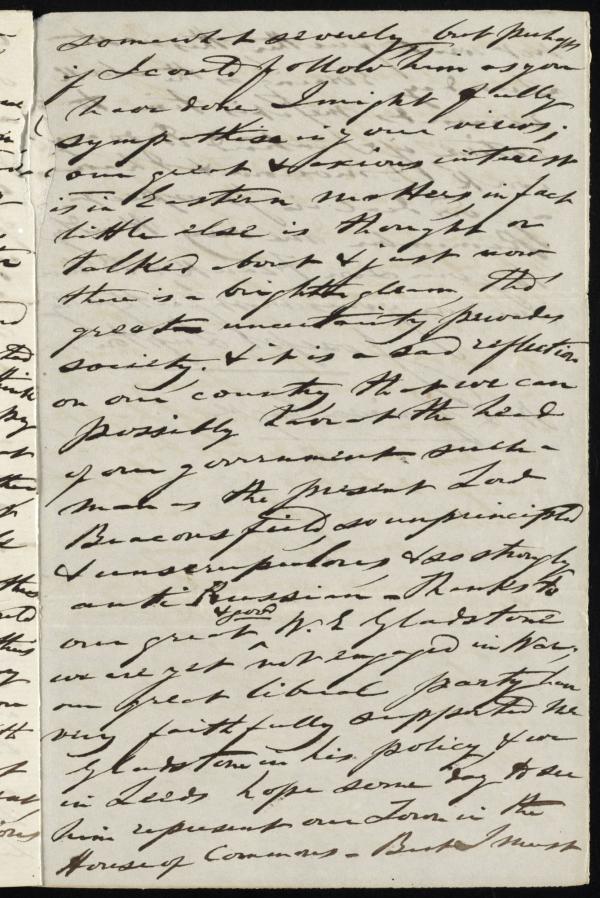 somewhat severely but perhaps
if I could follow him as you
have done I might fully
sympathise in your views;
our great & anxious interest
is in Eastern matters, in fact
little else is thought or
talked about & just now
there is a bright gleam tho'
great uncertainty pervades
society. & it is a sad reflection
on our country that we can
possibly have at the head
of our government such a
man as the present Lord
Beaconsfield so unprincipled
& unscrupulous & so strongly
anti Russian - thanks to
our great & good W. E Gladstone
we are yet not engaged in War,
our great liberal party have
very faithfully supported Mr
Gladstone in his policy & we
in Leeds hope some day to see
him represent our Town in the
House of Commons - But I must